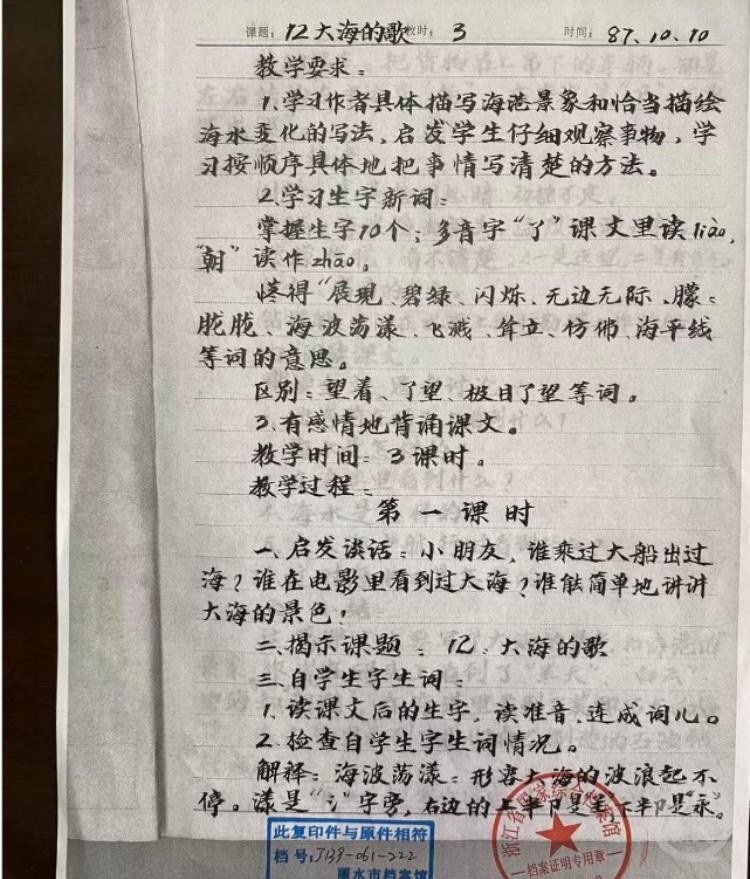 课题：12大海的歌 教时：3 时间：87.10.10
教学要求：
1.学习作者具体描写海港景象和恰当描绘
海水变化的写法，启发学生仔细观察事物，学
习按顺序具体地把事情写清楚的方法。
2.学习生字新词：
掌握生字10个；多音字“了”课文里读liào，
“朝”读作zhāo。
懂得“展现、碧绿、闪烁、无边无际、朦：
胧胧、海波荡漾、飞溅、耸立、仿佛、海平线
等词的意思。
区别：望着、了望、极目了望等词。
3.有感情地背诵课文。
教学时间：3课时。
教学过程：
第一课时
一、启发谈话：小朋友，谁乘过大船出过
海？谁在电影里看到过大海？谁能简单地讲讲
大海的景色！
二、揭示课题：12、大海的歌
三、自学生字生词：
1.读课文后的生字，读准音，连成词儿。
2.检查自学生字生词情况。
解释：海波荡漾：形容大海的波浪起不
停。漾是“氵”字旁，右边的上半卩是羊下半卩是“永”。
浙江省国家综合档案馆
档案证明专用章
此复印件与原件相符
档号：J139-061-222
丽水市档案馆